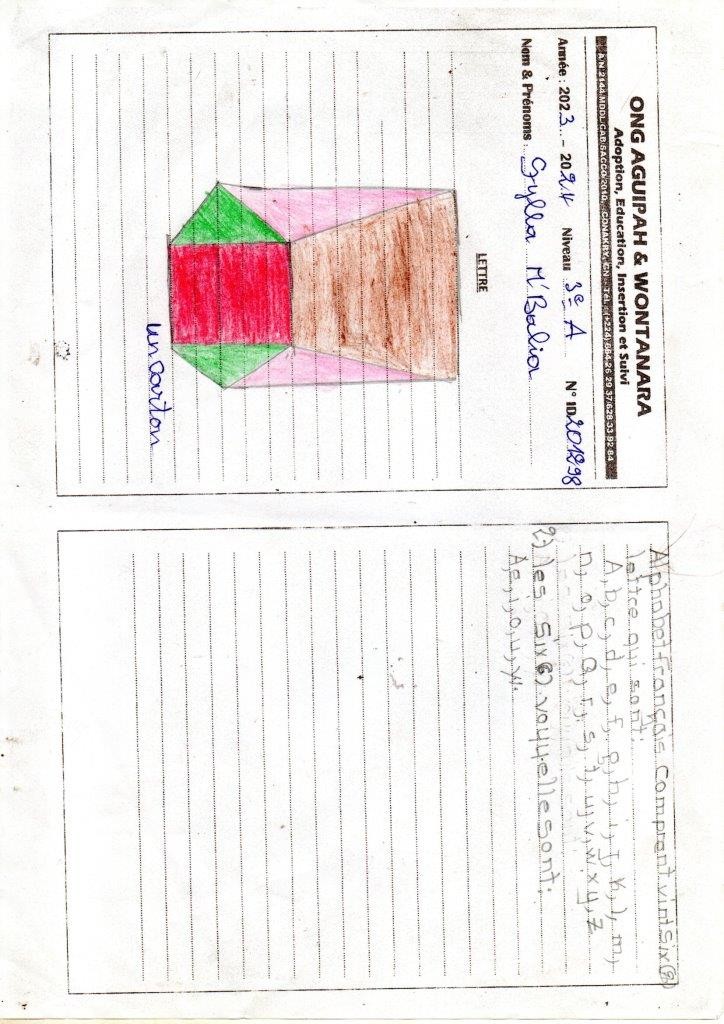 ONG AGUIPAH & WONTANARA
Adoption, Education, Insertion et Suivi
A/N. 2144/MDDL/CAB/SACCO/2010. - CONAKRY, GN - Tél : (+224) 664 26 29 37/628 33 92 84
Année : 2023 - 2024 Niveau 3e A N° ID 201298
Nom & Prénoms : Sylla M'Balia
LETTRE
un carton
Alphabet français comprant vint six (26)
lettre qui sont:
A, b, c, d, e, f, g, h, i, J, K, l, m,
n, o, p, Q, r, s, t, u, v, w, x y, z
2) les six (6) voyyelle sont:
A, e, i, o, u, y.